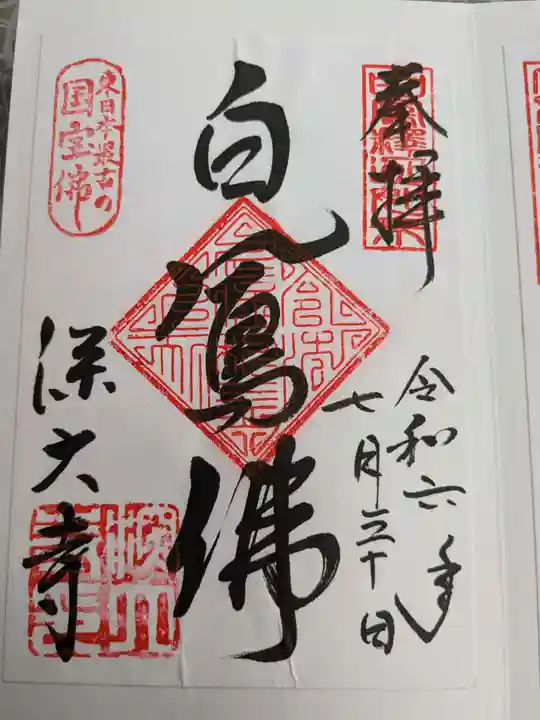 奉拝
令和六年
七月三十日
白鳳佛
深大寺
東日本最古の
国宝佛